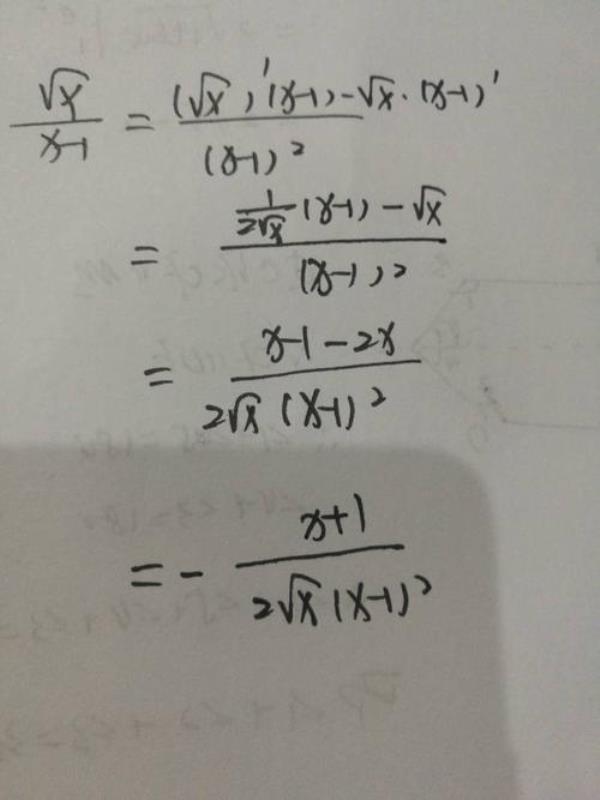 √x/(x-1) = ((√x)'(x-1)-√x·(x-1)')/(x-1)²
= (1/(2√x)(x-1)-√x)/(x-1)²
= (x-1-2x)/(2√x(x-1)²)
=-(x+1)/(2√x(x-1)²)